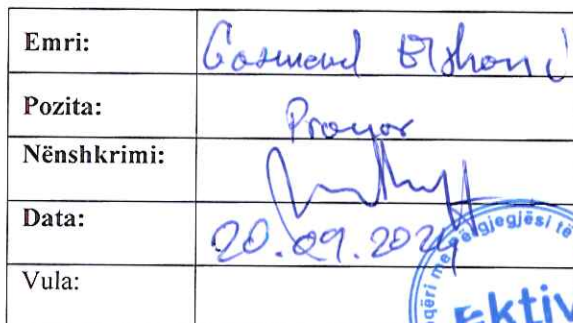 Emri: Gasmend Elshani
Pozita: Pronar
Nënshkrimi:
Data: 20.09.2024
Vula:
përgjegjësi të
Ektiv